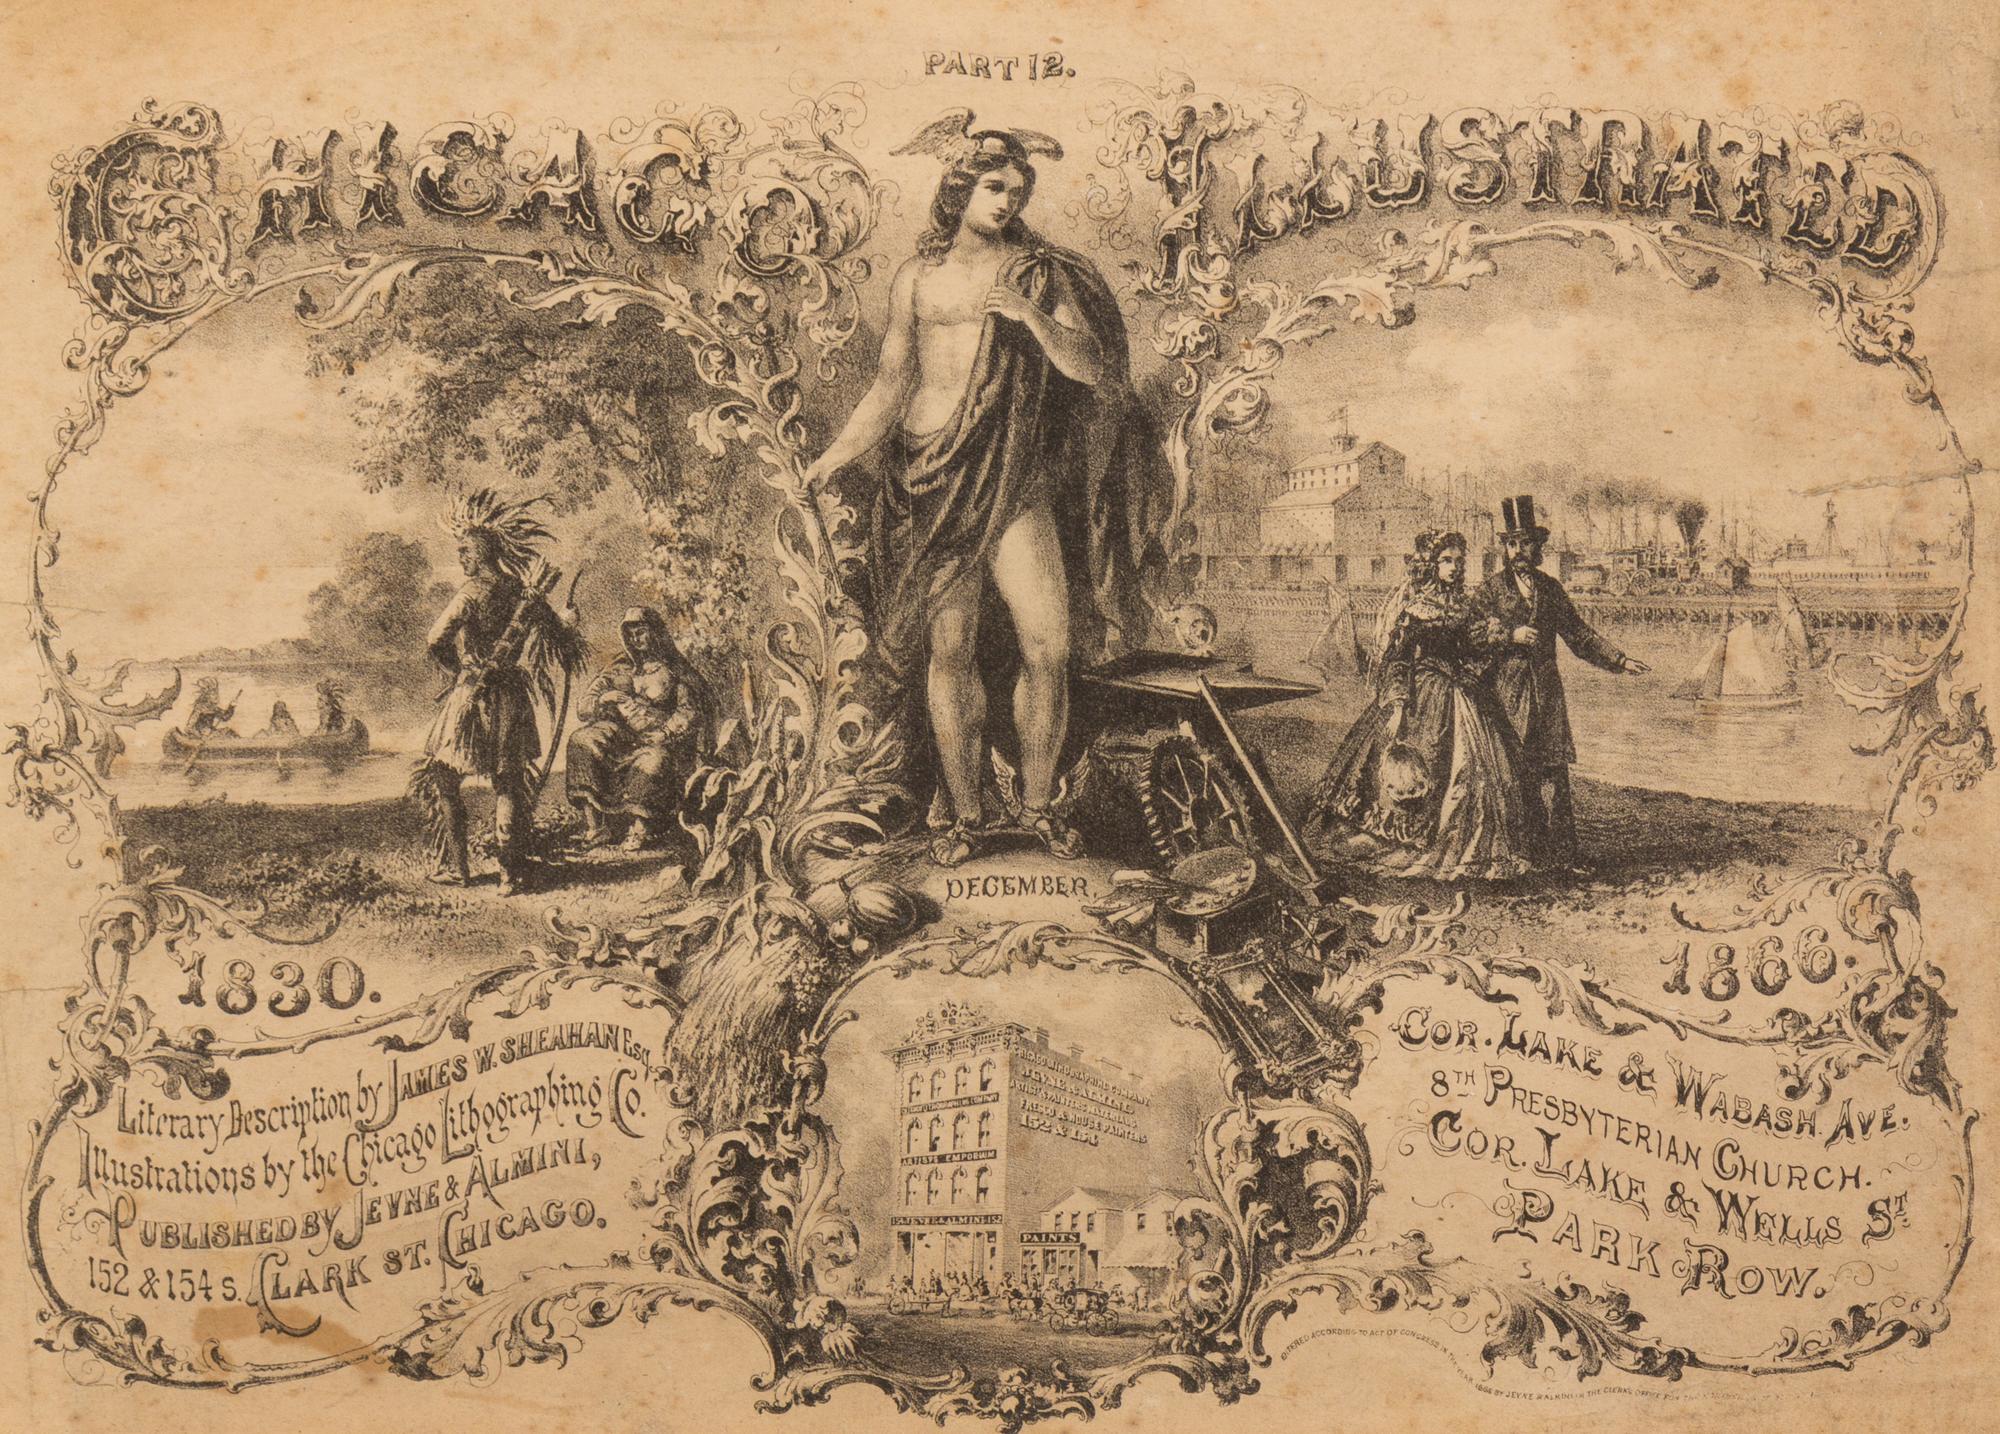 PART 12.
CHICAGO ILLUSTRATED
DECEMBER.
1830.
1866.
Literary Description by JAMES W. SHEAHAN Esq.
Illustrations by the Chicago Lithographing Co.
PUBLISHED BY JEVNE & ALMINI,
152 & 154 S. CLARK ST. CHICAGO.
CHICAGO LITHOGRAPHING COMPANY
JEVNE & ALMINI
ARTIST & PAINTERS MATERIALS
FRESCO & HOUSE PAINTERS
152 & 154
ARTISTS EMPORIUM
154 JEVNE & ALMINI 152
PAINTS
COR. LAKE & WABASH AVE.
8TH PRESBYTERIAN CHURCH.
COR. LAKE & WELLS ST.
PARK ROW.
ENTERED ACCORDING TO ACT OF CONGRESS IN THE YEAR 1866 BY JEVNE & ALMINI IN THE CLERKS OFFICE FOR THE